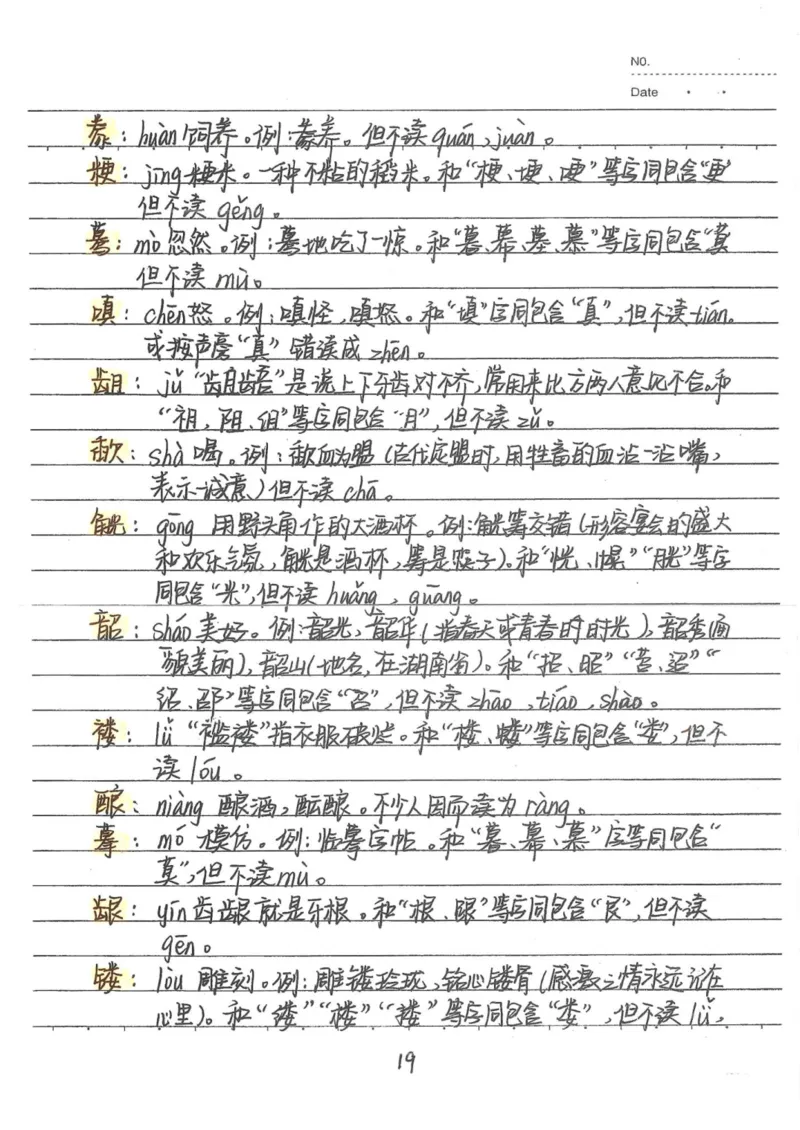 NO.
Date
豢：huàn 饲养。例：豢养。但不读 quán，juàn。
粳：jīng 粳米。一种不粘的稻米。和“梗、埂、哽”等字同包含“更”
但不读 gěng。
蓦：mò 忽然。例：蓦地吃了一惊。和“暮、幕、墓、慕”等字同包含“莫
但不读 mù。
嗔：chēn 怒。例：嗔怪，嗔怒。和“填”字同包含“真”，但不读 tián。
或按声旁“真”错读成 zhēn。
龃：jǔ “龃龉”是说上下牙齿对不齐，常用来比方两人意见不合。和
“祖，阻、组”等字同包含“且”，但不读 zǔ。
歃：shà 喝。例：歃血为盟（古代定盟时，用牲畜的血沾一沾嘴，
表示诚意）但不读 chā。
觥：gōng 用野头角作的大酒杯。例：觥筹交错（形容宴会的盛大
和欢乐气氛，觥是酒杯，筹是筷子）。和“恍、幌”“胱”等字
同包含“光”，但不读 huǎng，guāng。
韶：sháo 美好。例：韶光，韶华（指春天或青春时的时光），韶秀（面
貌美丽），韶山（地名，在湖南省）。和“招、昭”“苕、迢”“
绍、邵”等字同包含“召”，但不读 zhāo，tiáo，shào。
褛：lǚ “褴褛”指衣服破烂。和“楼、蝼”等字同包含“娄”，但不
读 lóu。
酿：niàng 酿酒，酝酿。不少人因而读为 ràng。
摹：mó 模仿。例：临摹字帖。和“暮、幕、慕”字等同包含“
莫”，但不读 mù。
龈：yín 齿龈就是牙根。和“根、跟”等字同包含“艮”，但不读
gēn。
镂：lòu 雕刻。例：雕镂玲珑，铭心镂骨（感激之情永远记在
心里）。和“缕”“楼”“搂”等字同包含“娄”，但不读 lǚ，
19